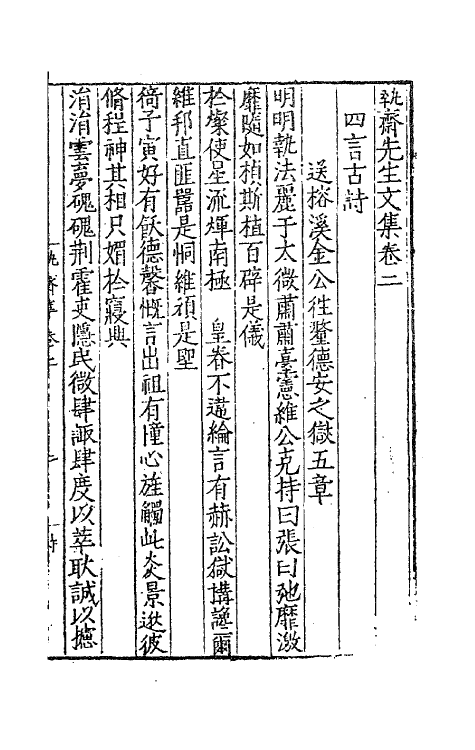 執齋先生文集卷二
四言古詩
送榕溪金公徃釐德安之獄五章
明明執法麗于太微肅肅臺憲維公克持曰張曰弛靡激
靡隨如楨斯植百辟是儀
於燦使星流煇南極　皇眷不遺綸言有赫訟獄搆讒爾
維邦直匪嚚是恫維頑是堲
徛子寅好有飫德馨慨言出祖有憧心旌觸此炎景逖彼
脩程神其相只媚於寢興
涓涓雲夢磈磈荆霍吏隱民微肆諏肆度以莘耿誠以摅
執齋集卷二
詩